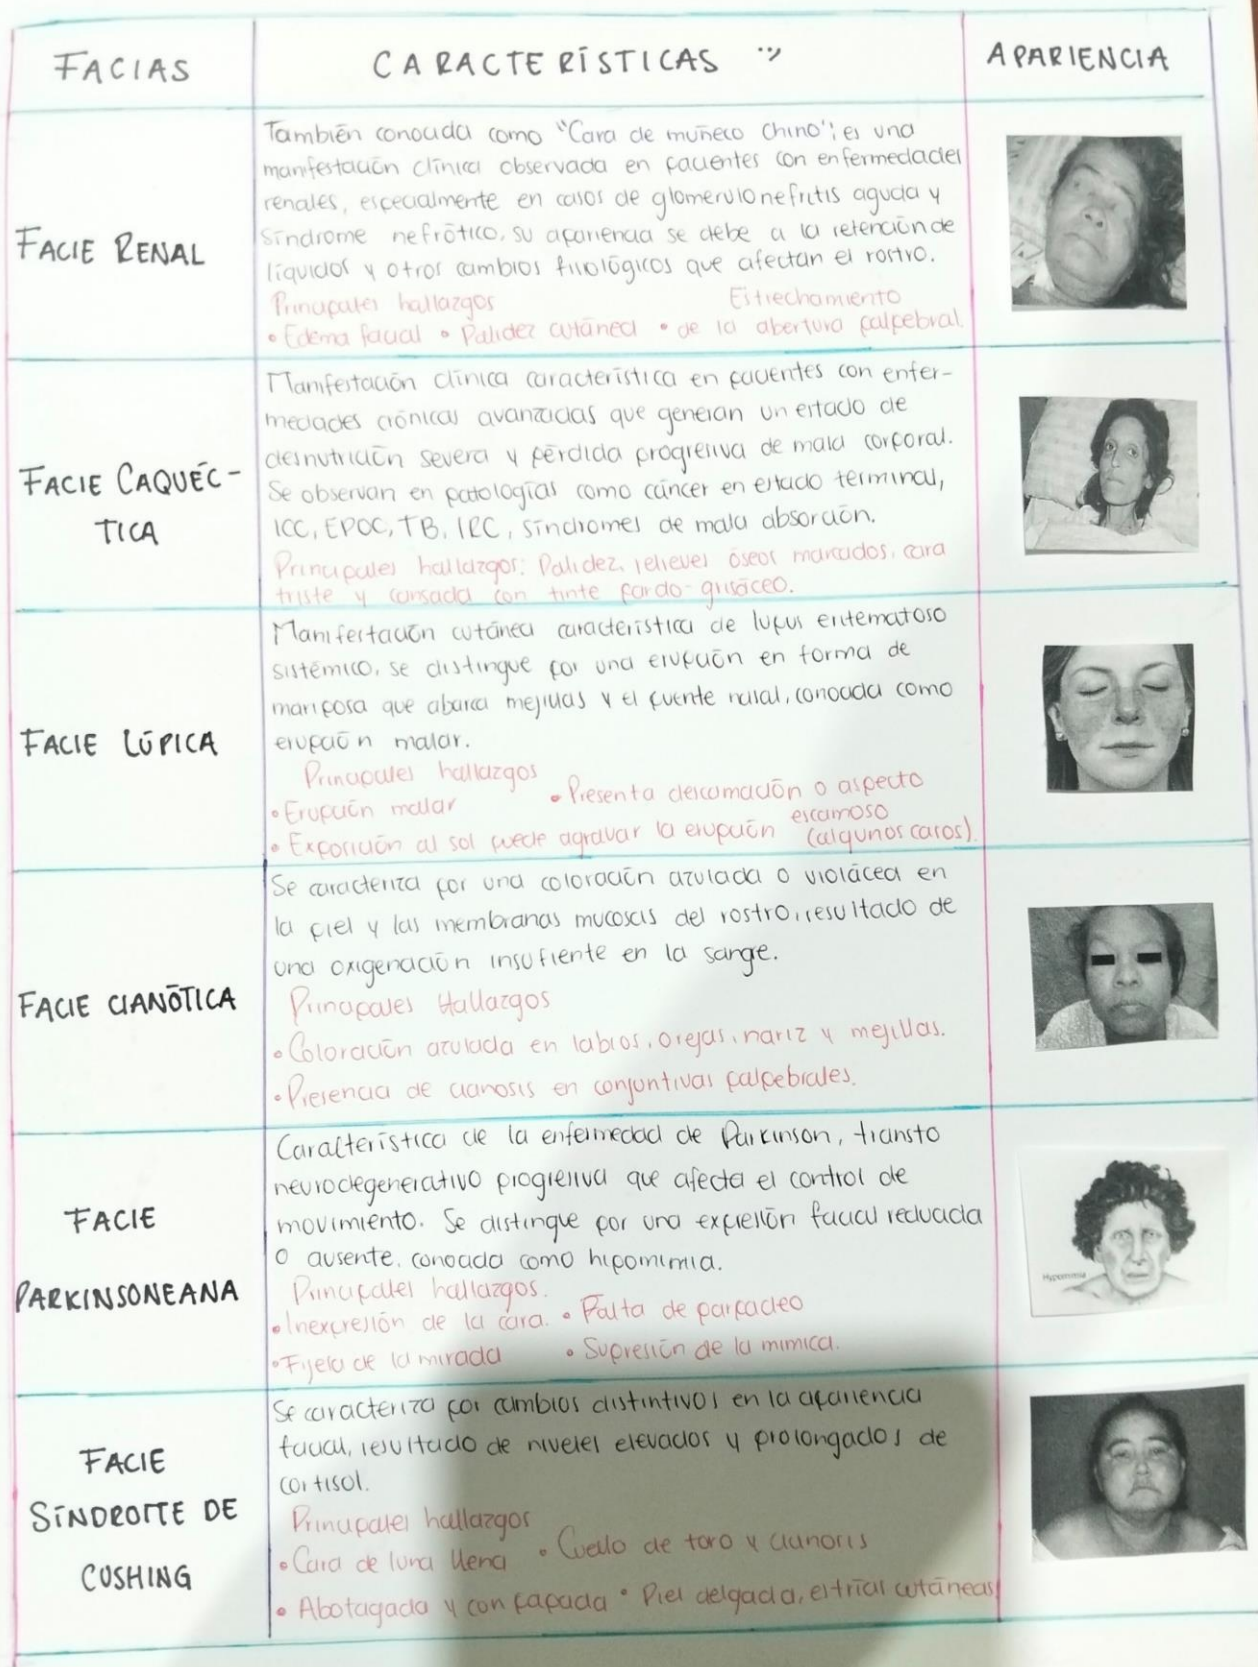 FACIAS
CARACTERÍSTICAS
APARIENCIA
FACIE RENAL
También conocida como "Cara de muñeco Chino"; es una
manifestación clínica observada en pacientes con enfermedades
renales, especialmente en casos de glomerulonefritis aguda y
síndrome nefrótico, su apariencia se debe a la retención de
líquidos y otros cambios fisiológicos que afectan el rostro.
Principales hallazgos
• Edema facial • Palidez cutánea • Estrechamiento
de la abertura palpebral.
FACIE CAQUÉC-
TICA
Manifestación clínica característica en pacientes con enfer-
medades crónicas avanzadas que generan un estado de
desnutrición severa y pérdida progresiva de masa corporal.
Se observan en patologías como cáncer en estado terminal,
ICC, EPOC, TB, IRC, síndromes de mala absorción.
Principales hallazgos: Palidez, relieves óseos marcados, cara
triste y cansada con tinte pardo-grisáceo.
FACIE LÚPICA
Manifestación cutánea característica de lupus eritematoso
sistémico, se distingue por una erupción en forma de
mariposa que abarca mejillas y el puente nasal, conocida como
erupción malar.
Principales hallazgos
• Erupción malar
• Presenta descamación o aspecto
escamoso
(algunos casos).
• Exposición al sol puede agravar la erupción
FACIE CIANÓTICA
Se caracteriza por una coloración azulada o violácea en
la piel y las membranas mucosas del rostro, resultado de
una oxigenación insufiente en la sangre.
Principales Hallazgos
• Coloración azulada en labios, orejas, nariz y mejillas.
• Presencia de cianosis en conjuntivas palpebrales.
FACIE
PARKINSONEANA
Característica de la enfermedad de Parkinson, transto
neurodegenerativo progresiva que afecta el control de
movimiento. Se distingue por una expresión facial reducida
o ausente, conocida como hipomimia.
Principales hallazgos.
• Inexpresión de la cara. • Falta de parpadeo
• Fijeza de la mirada • Supresión de la mimica.
Hypomimia
FACIE
SÍNDROME DE
CUSHING
Se caracteriza por cambios distintivos en la apariencia
facial, resultado de niveles elevados y prolongados de
cortisol.
Principales hallazgos
• Cara de luna llena • Cuello de toro y cianosis
• Abotagada y con papada • Piel delgada, estrías cutáneas